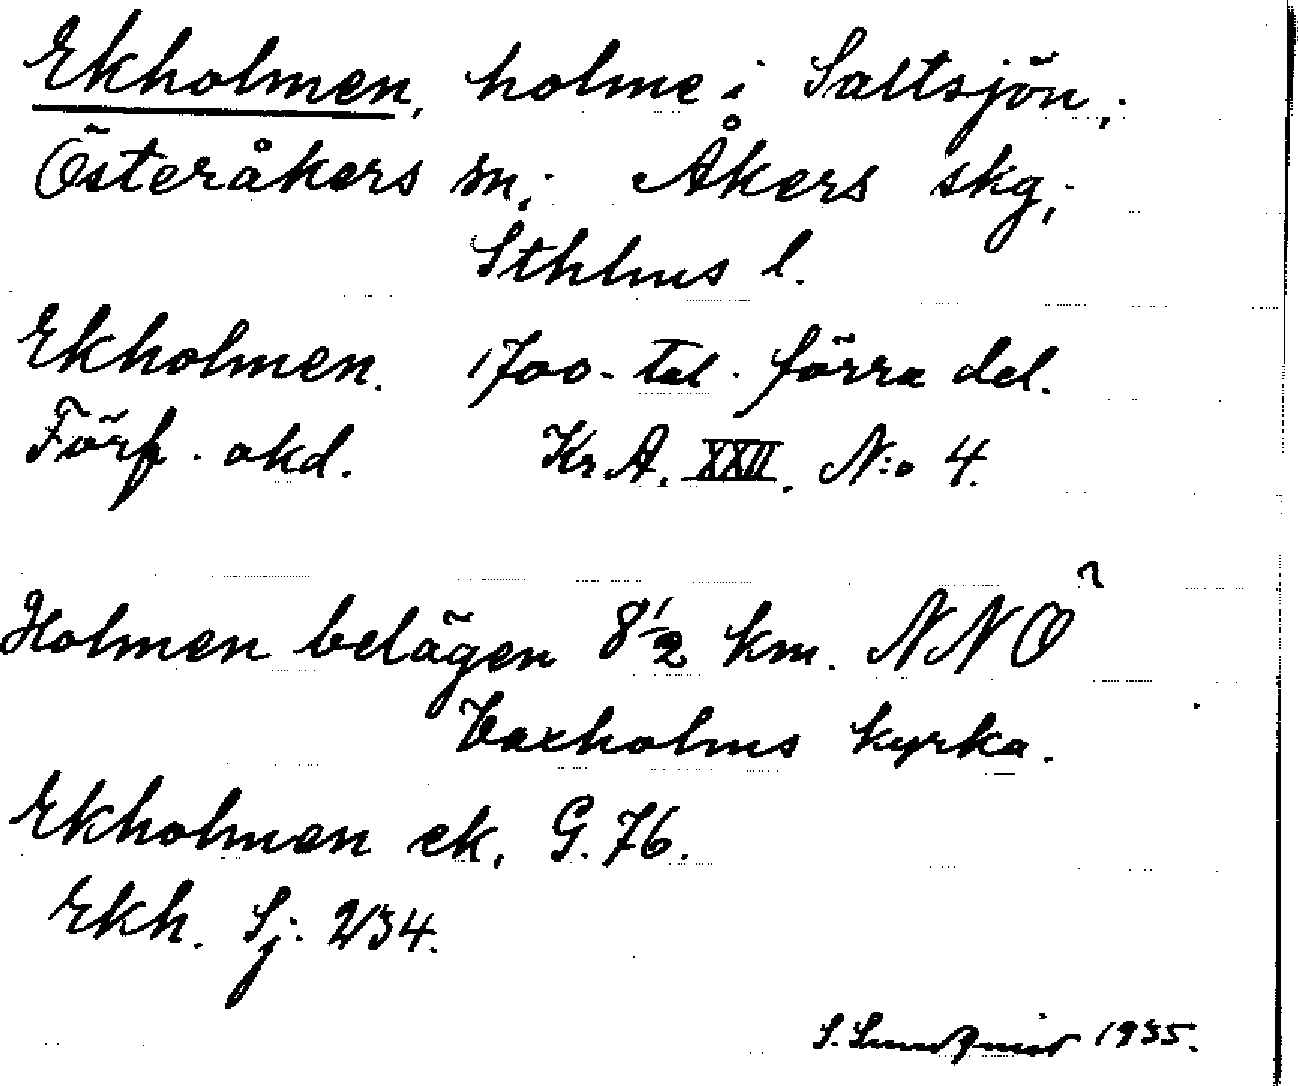 Ekholmen, holme i Saltsjön,
Österåkers sn; Åkers skg;
Sthlms l.
Ekholmen. 1700-tal. förra del.
Förf. okd. Kr. A. XXII. N:o 4.
Holmen belägen 8 1/2 km. NNO
Vaxholms kyrka.
Ekholmen ek. G. 76.
Ekh. Sj. 234.
S. Lundqvist 1935.